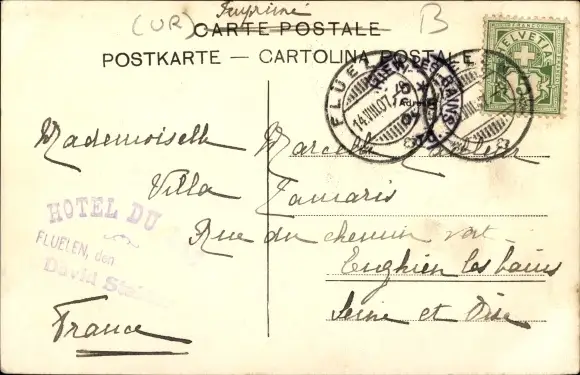 (UR) Imprimé B
CARTE POSTALE
POSTKARTE — CARTOLINA POSTALE
HELVETIA
FLUELEN
14.VIII.07.
Mademoiselle Marcelle
Villa Tamaris
HOTEL DU
FLUELEN, den
David
Rue du chemin vert
Enghien les bains
Seine et Oise
France